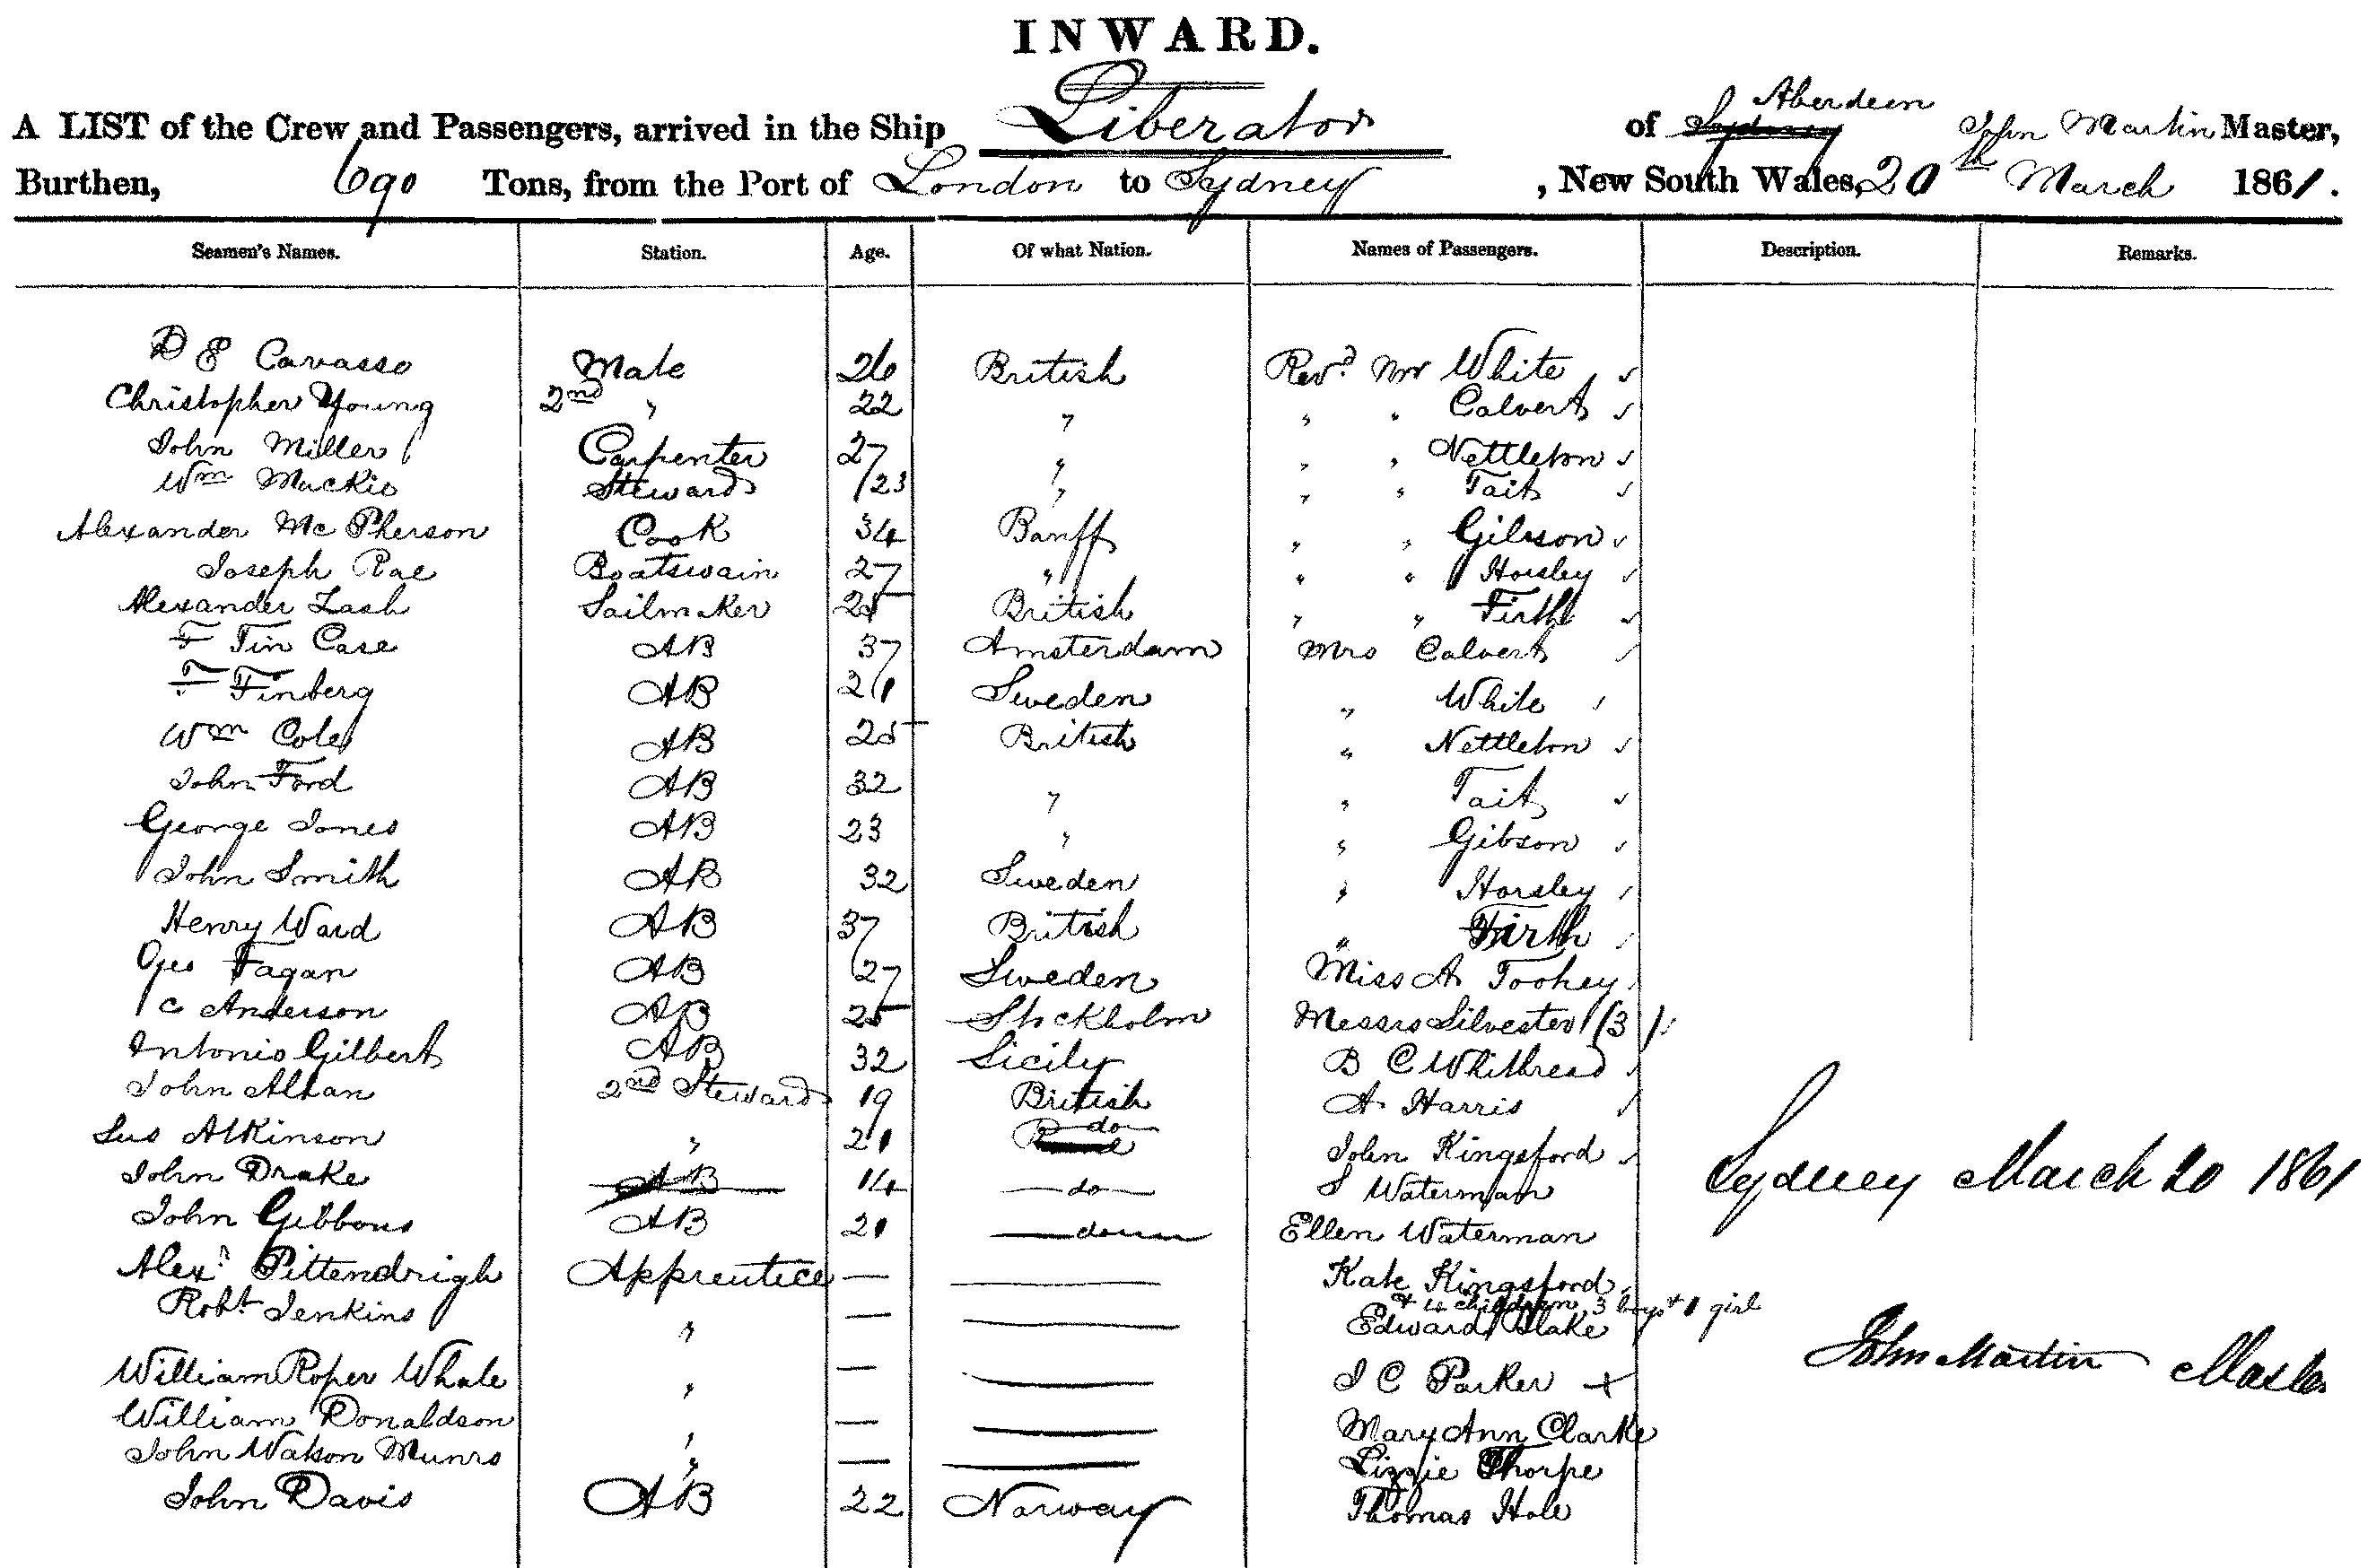 INWARD.
A LIST of the Crew and Passengers, arrived in the Ship Liberator of Sydney Aberdeen John Martin Master,
Burthen, 690 Tons, from the Port of London to Sydney, New South Wales, 20th March 1861.
Seamen's Names. Station. Age. Of what Nation. Names of Passengers. Description. Remarks.
D E Cavasso Mate 26 British Revd Mr White ✓
Christopher Young 2nd " 22 " " " Calvert ✓
John Miller Carpenter 27 " " " Nettleton ✓
Wm Mackie Steward 23 " " " Tait ✓
Alexander McPherson Cook 34 Banff " " Gibson ✓
Joseph Rae Boatswain 27 " " " Horsley ✓
Alexander Lash Sailmaker 25 British " " Firth ✓
F Tin Case AB 37 Amsterdam Mrs Calvert ✓
F Finberg AB 21 Sweden " White ✓
Wm Cole AB 25 British " Nettleton ✓
John Ford AB 32 " " Tait ✓
George Jones AB 23 " " Gibson ✓
John Smith AB 32 Sweden " Horsley ✓
Henry Ward AB 37 British " Firth ✓
Geo Fagan AB 27 Sweden Miss A Toohey
C Anderson AB 25 Stockholm Messrs Silvester (3)
Antonio Gilbert AB 32 Sicily B C Whithread
John Allan 2nd Steward 19 British A Harris ✓
Atkinson " 21 do John Kingsford ✓
John Drake AB 14 do S Waterman
John Gibbons AB 21 do Ellen Waterman
Alexr Pittendrigh Apprentice — — Kate Kingsford
& 4 children 3 boys + 1 girl
Robt Jenkins " — — Edward Blake
William Roper Whale " — — J C Parker +
William Donaldson " — — Mary Ann Clarke
John Watson Munro " — — Lizzie Thorpe
John Davis AB 22 Norway Thomas Hole
Sydney March 20 1861
John Martin Master